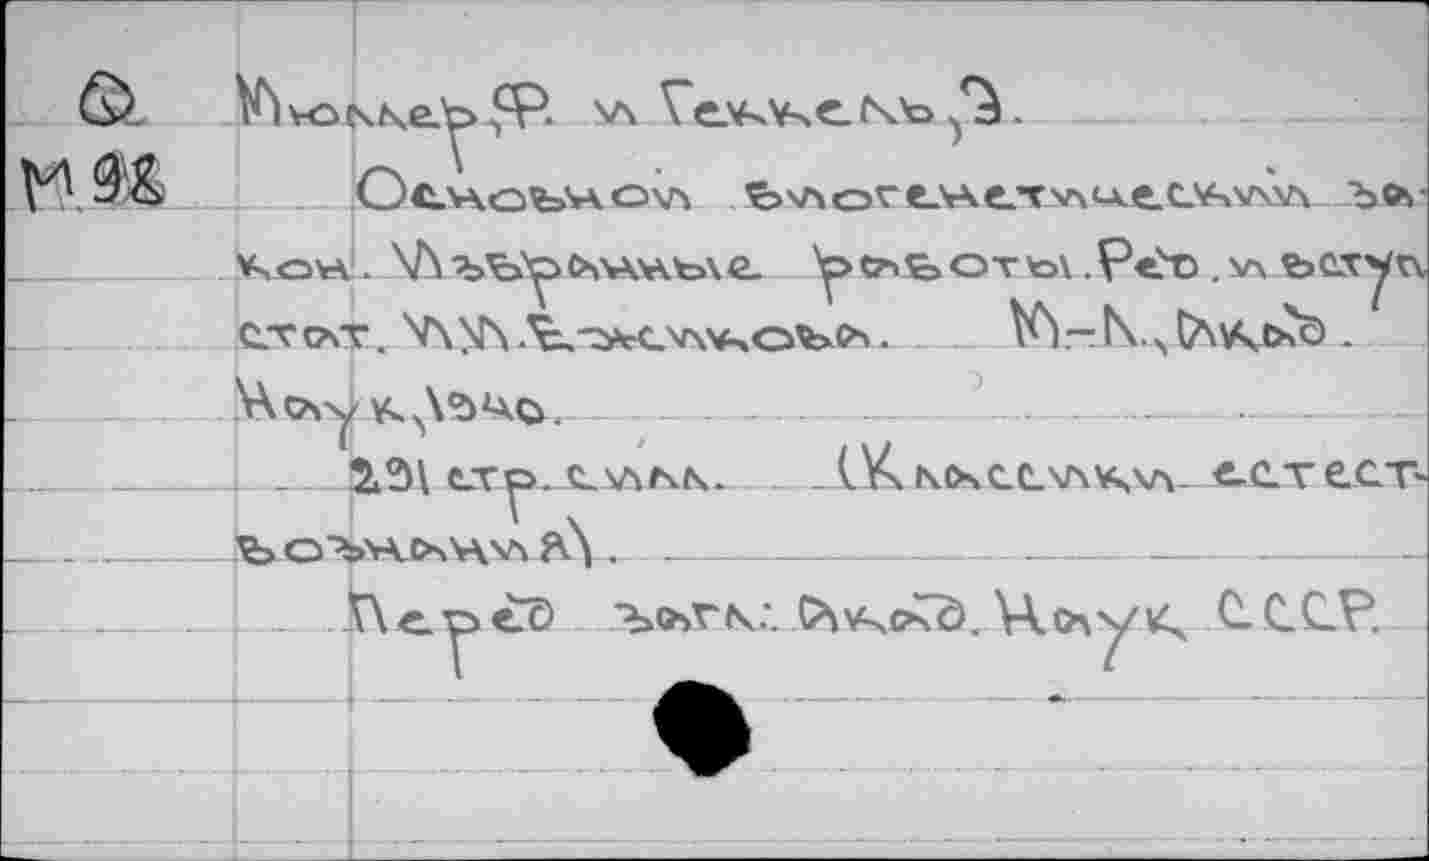 Ф М98
Мюллер,Ф. и Геккель,Э.
Основной биогенетический за-
кон. Избранные работы. Ред. и вступ.
стат. И.И.Ежикова. М-Л., Акад.
наук,1940.
291 стр. с илл. (Классики естест-
вознания).
Перед загл: Акад. Наук СССР.